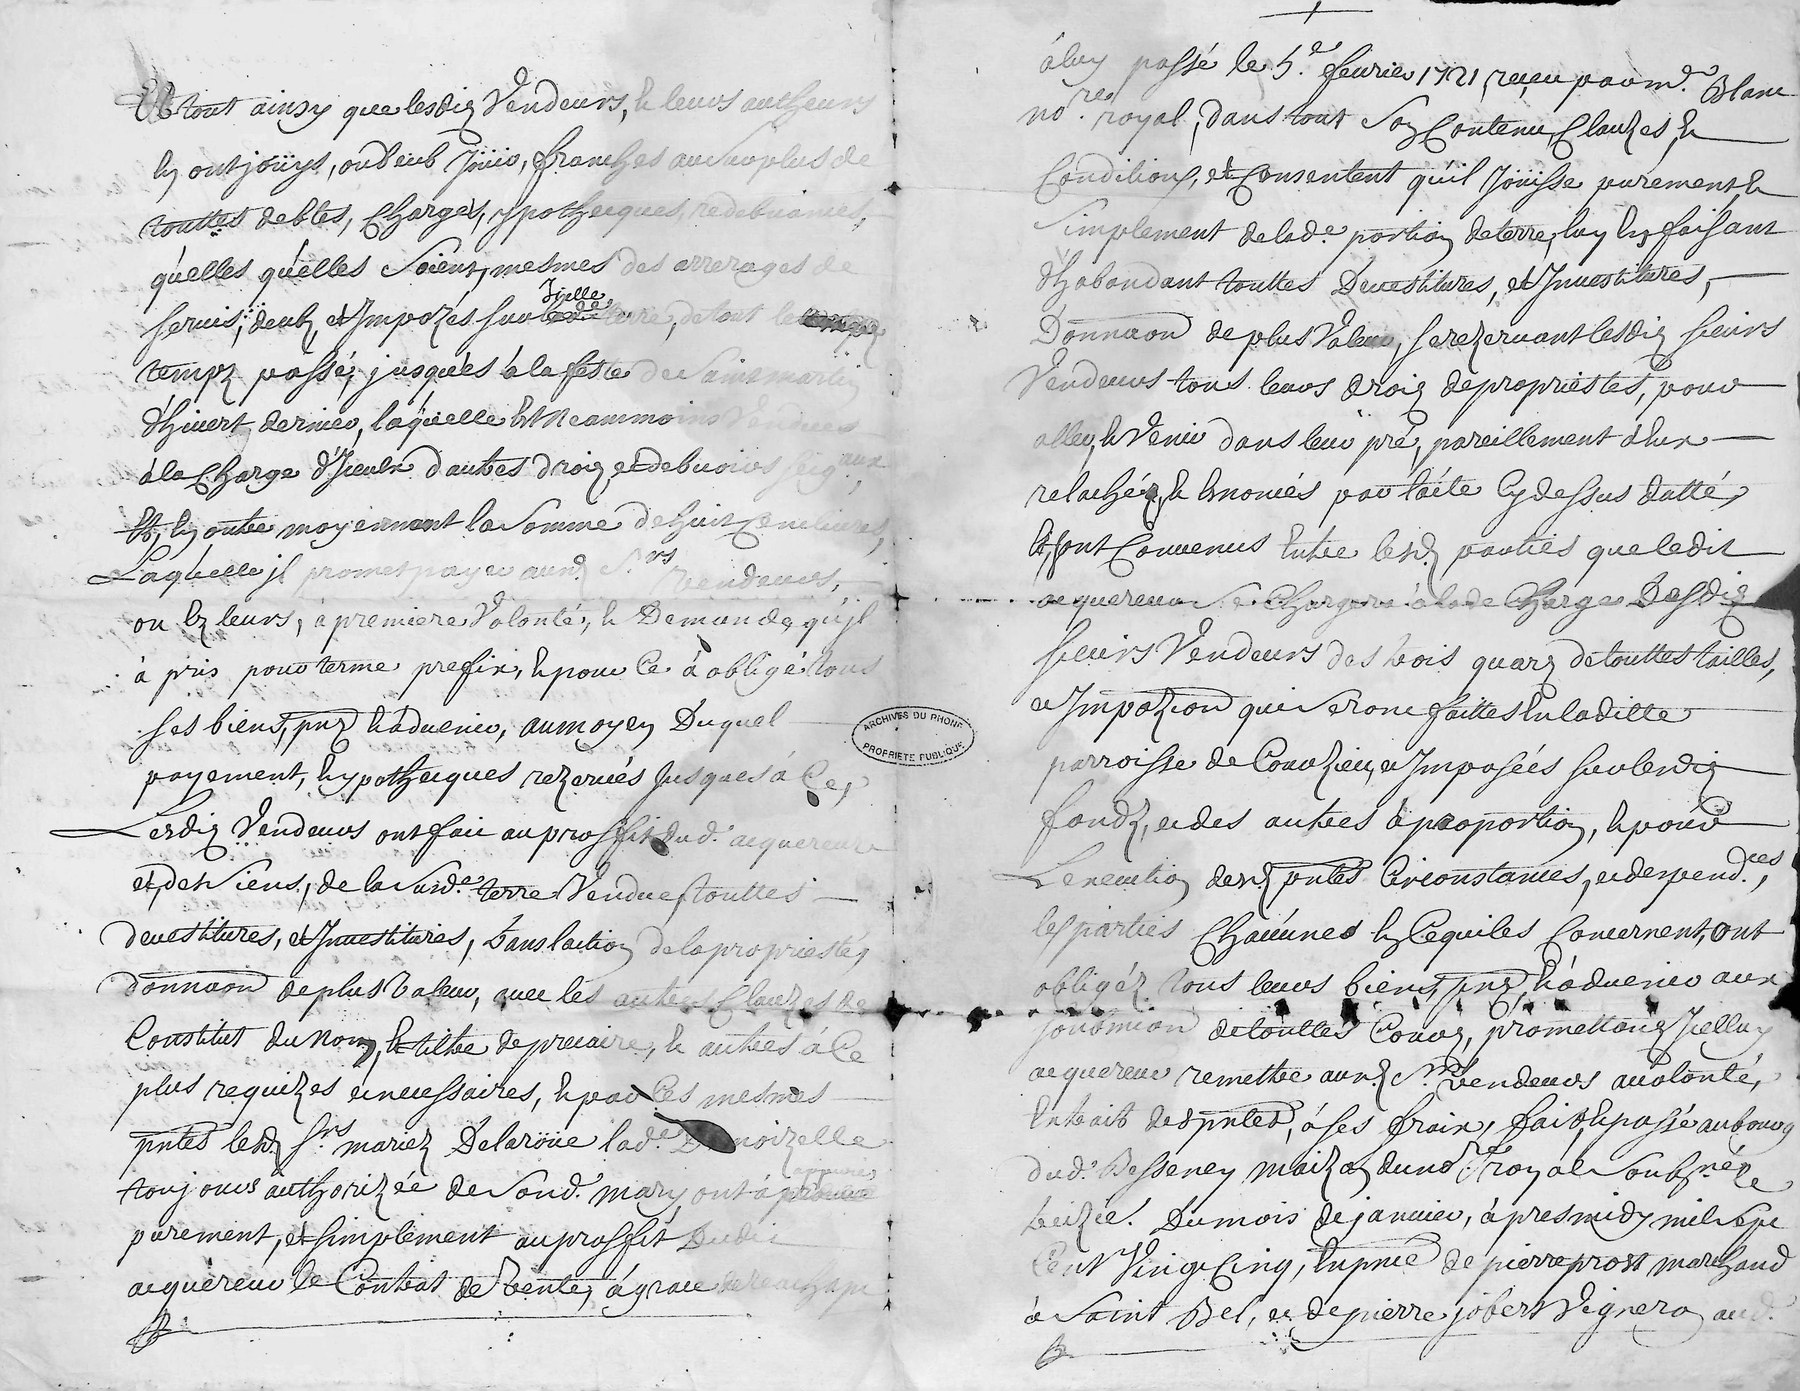 Et tout ainsy que lesdiz Vendeurs, & leurs autheurs
en ont joüys, ou deub joüir, franches au surplus de
touttes debtes, Charges, ypothecques, redebvances,
qu'elles qu'elles soient, mesmes des arrerages de
servis, deub, et Imposés sur Icelle terre, de tout le
tempz passé, jusques à la feste de Saint martin
d'hivert dernier, laquelle est Neammoins Vendue
à la Charge d'Iceulx d'autres droiz et debvoirs seig.aux
Et, en outre moyennant la Somme de huit Cent livres,
Laquelle jl promet payer auxd. Srs Vendeurs,
ou Ez leurs, à premiere Volonté, & Demande, qu'jl
à pris pour terme prefix, & pour Ce à obligé tous
ses biens, pnz & à advenir, au moyen Duquel
payement, hypothecques rezervés Jusques à Ce,
Lesdiz Vendeurs ont fait au proffit dud. acquereur
et des Siens, de la Susd.e terre Vendue, touttes
devestitures, et Investitures, translation de la proprieste,
donnaon de plus Valeur, avec les autres Clauzes de
Constitut du Nom, & tiltre de precaire, & autres à Ce
plus requizes & necessaires, & par Ces mesmes
pntes lesd. Srs mariez Delaroüe lad.e Demoizelle
toujours authorizée de Sond. mary, ont approuvé
purement, et simplement au proffit Dudit
acquereur le Contrat de Vente, à grace de reachapt
à luy passé le 5.e fevrier 1721, receu par m.e Blanc
no.re royal, dans tout Son Contenu, Clauzes, &
Conditions, et Consentent qu'il Joüisse purement &
Simplement de lad.e portion de terre, luy En faisant
d'habondant touttes Devestitures, et Investitures,
Donnaon de plus Valeur, se rezervant lesdiz sieurs
Vendeurs tous leurs droiz de propriestes, pour
aller, & Venir dans leur pré, pareillement d'Eux
relachéz, & Enoncés par l'acte Cy dessus datté,
Et sont Convenus Entre lesd. parties que ledit
acquereur Se Chargera à la de Charge Desdiz
sieurs Vendeurs des trois quarz de touttes tailles,
et Impozion qui Seront faittes En laditte
parroisse de Courzieu, et Imposées sur lesdiz
fondz, et des autres à proportion, & pour
L'execution desd. pntes Circonstances, et despend.ces,
les parties Chacunes En Ce qui les Concernent, ont
obligéz tous leurs biens, pnz, & à advenir aux
de touttes Courz, promettant Icelluy
acquereur remettre auxd. Srs Vendeurs a volonté,
Extrait des pntes, à ses fraix, fait, & passé au bourg
dud. Besseney maizon du no.re royal Soubz.né le
treizie. Du mois de janvier, après midy mil Sept
Cent Vingt Cinq, En pnce de pierre prost marchand
à Saint Bel, et de pierre jobert Vigneron aud.
ARCHIVES DU RHONE
PROPRIETE PUBLIQUE